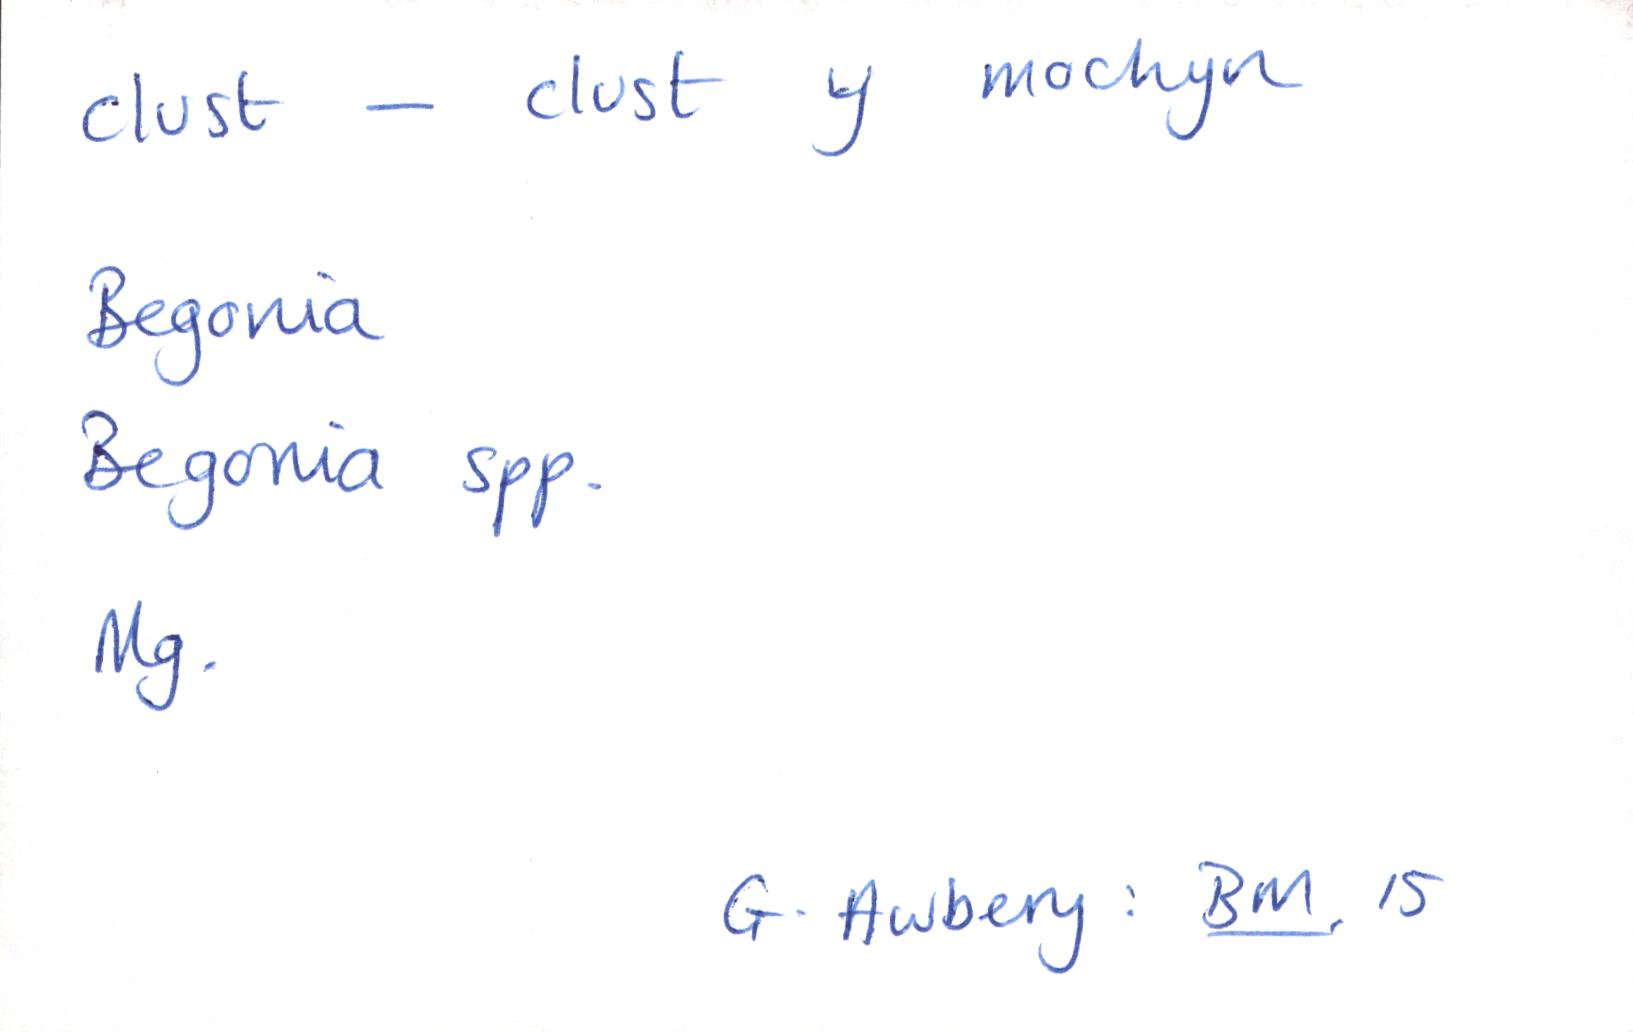 clust — clust y mochyn
Begonia
Begonia spp.
Mg.
G. Awbery : BM, 15